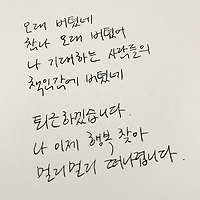 오래 버텼네
참나 오래 버텼어
나 기대하는 사람들의
책임감에 버텼네
퇴근하겠습니다.
나 이제 행복 찾아
멀리멀리 떠나렵니다.